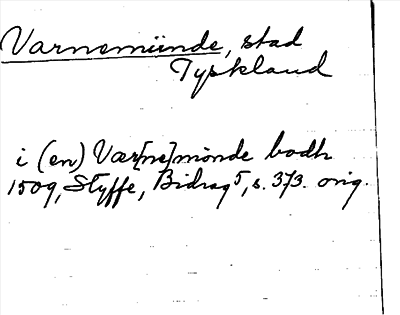 Varnemünde, stad
Tyskland
i (en) Vær[ne]mönde bodh
1509, Styffe, Bidrag 5, s. 373. orig.